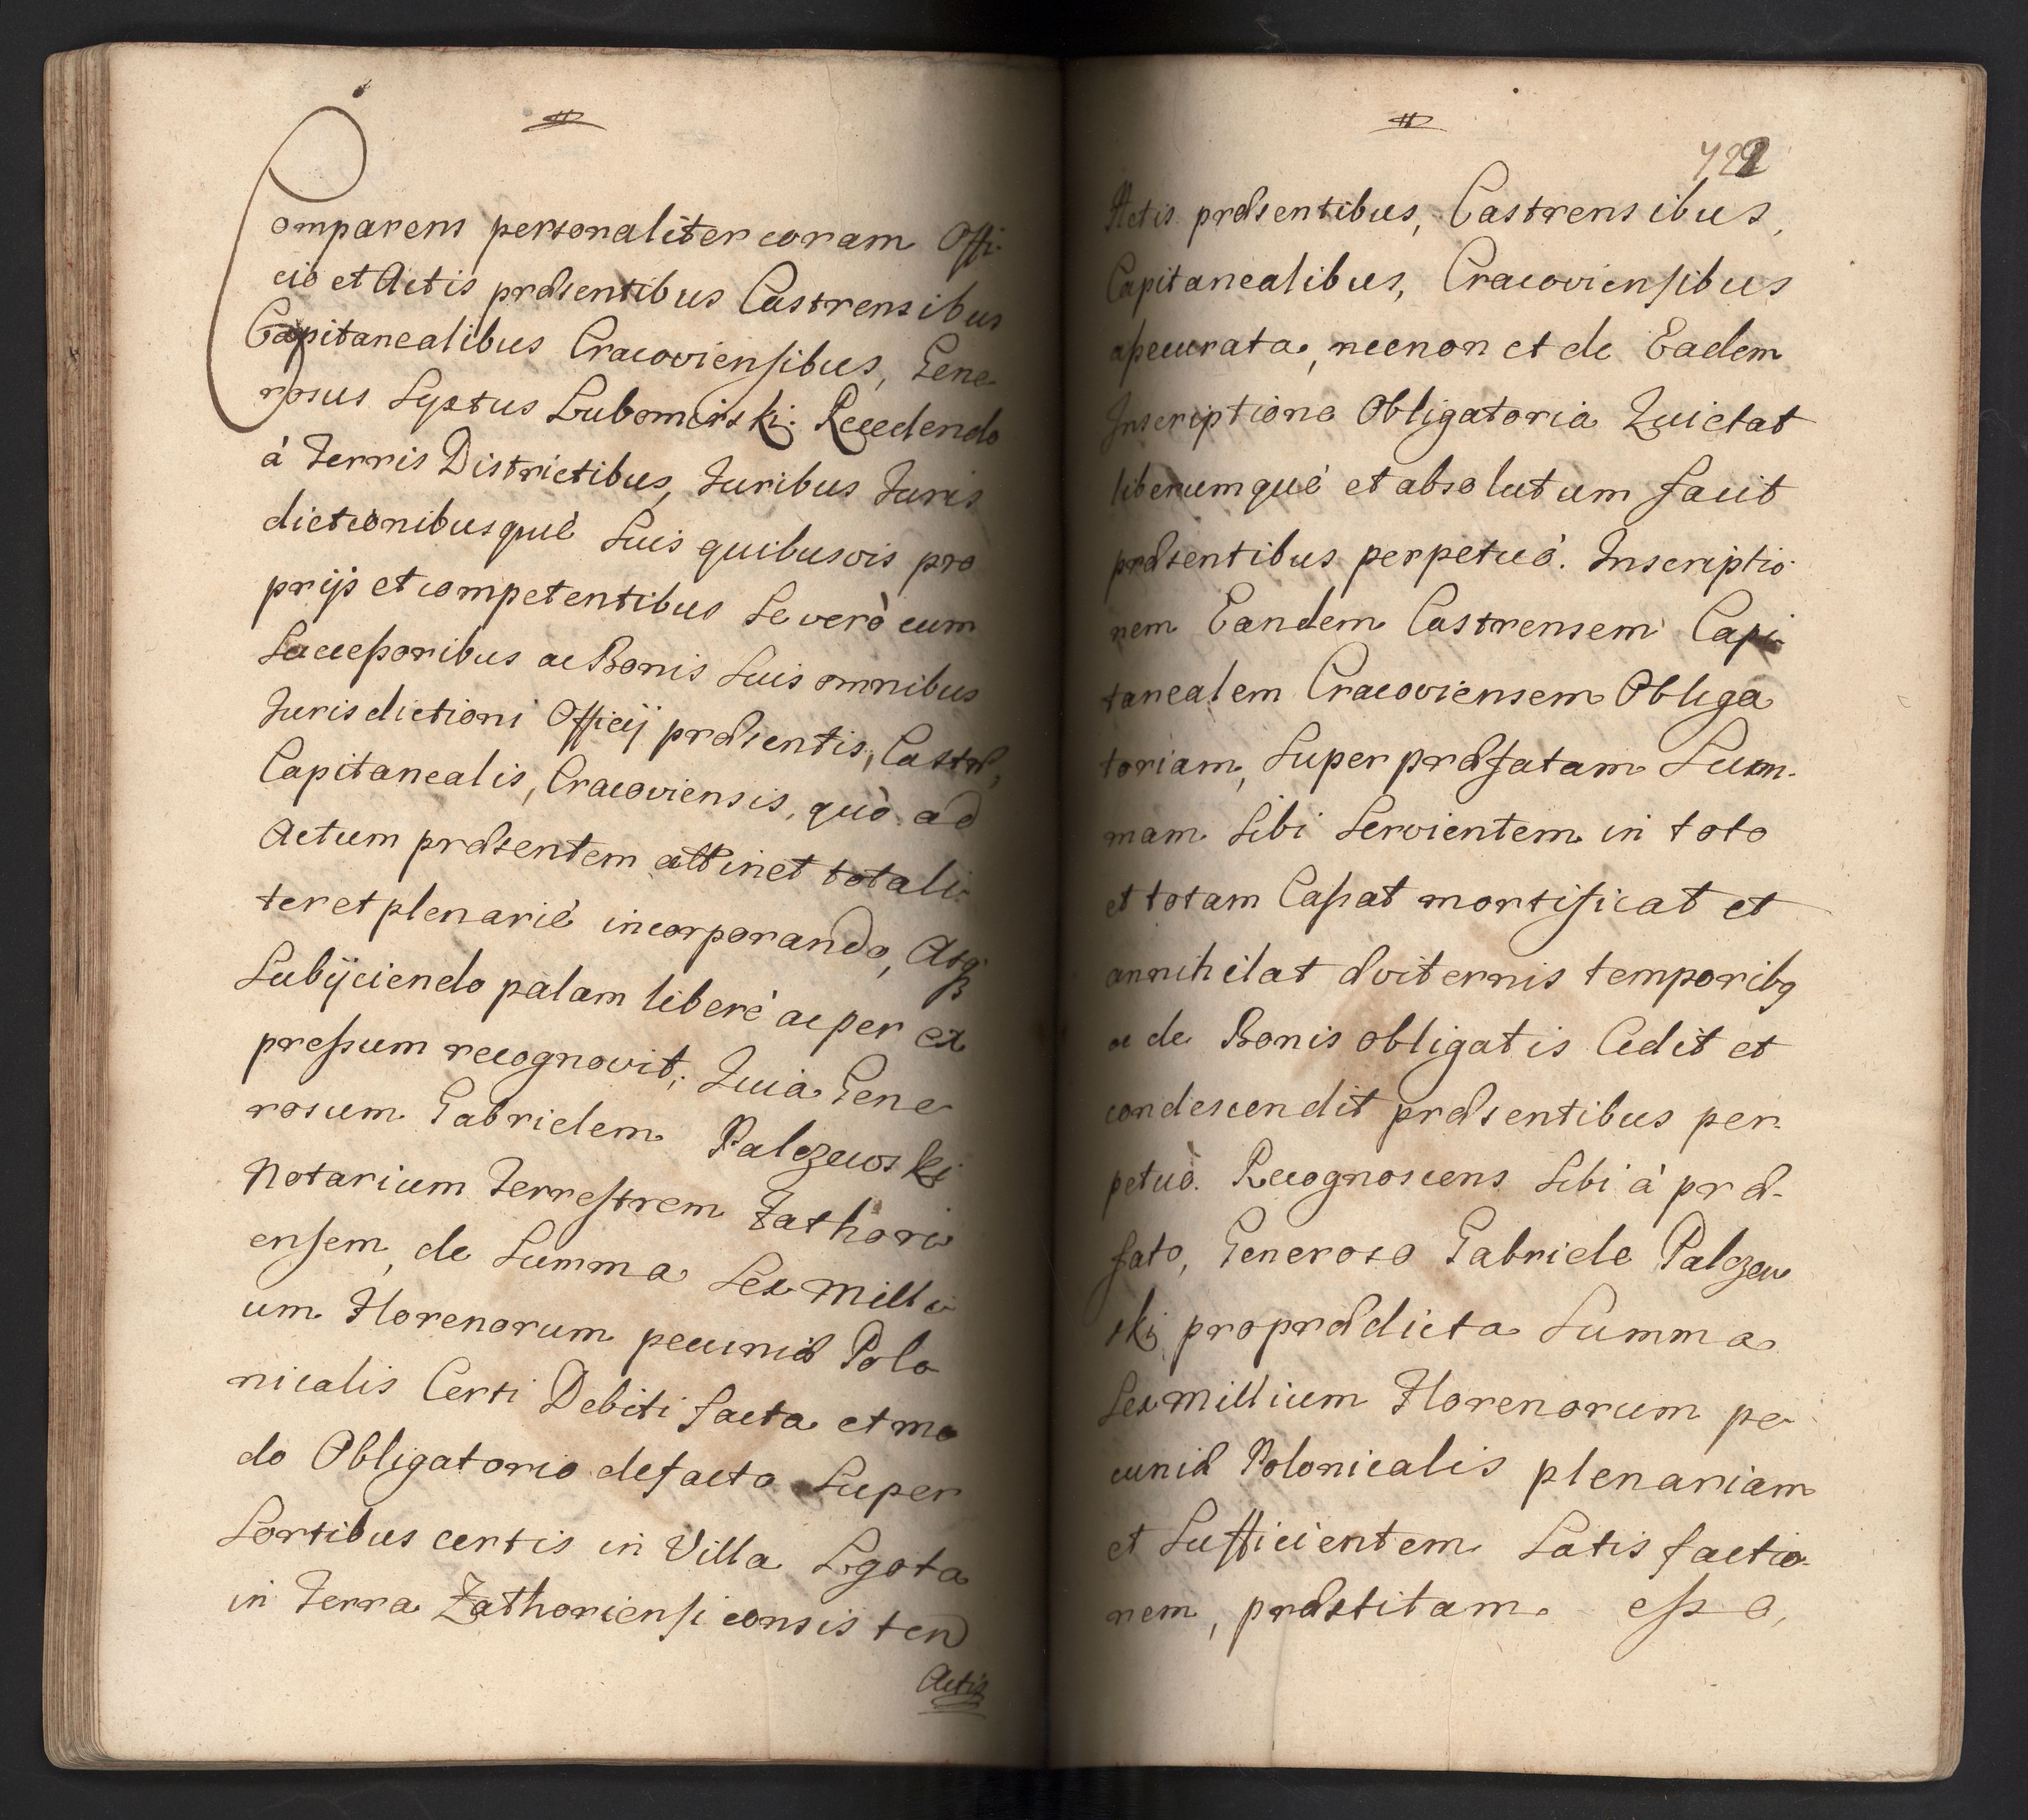 Comparens personaliter coram Offi-
cio et Actis præsentibus Castrensibus
Capitanealibus Cracoviensibus, Gene-
rosus Syxtus Lubomirski. Recedendo
à Terris Districtibus, Juribus Juris
dictionibusquè Suis quibusvis pro
prijs et competentibus Se verò cum
Successoribus ac Bonis Suis omnibus
Jurisdictioni Officij præsentis, Castr,
Capitanealis, Cracoviensis, quò ad
Actum præsentem attinet totali-
ter et plenariè incorporando, Atq
Subijciendo palam liberè ac per ex
pressum recognovit; Quia Gene
rosum Gabrielem Palczewski
Notarium Terrestrem Zathori
ensem, de Summa Sex Milli
um Florenorum pecuniæ Polo
nicalis Certi Debiti facta et mo
do Obligatorio de facto Super
Sortibus certis in Villa Lgota
in Terra Zathoriensi consisten
Actis
722
Actis præsentibus, Castrensibus,
Capitanealibus, Cracoviensibus
assecurata, necnon et de Eadem
Inscriptione Obligatoria Quietat
liberumquè et absolutum facit
præsentibus perpetuò. Inscriptio-
nem Eandem Castrensem Capi-
tanealem Cracoviensem Obliga
toriam, Super præfatam Sum-
mam Sibi Servientem in toto
et totam Cassat mortificat et
annihilat æviternis temporibq
ac de Bonis obligatis Cedit et
condescendit præsentibus per-
petuò. Recognoscens Sibi à præ-
fato, Generoso Gabriele Palczew
ski pro prædicta Summa
Sex Millium Florenorum pe-
cuniæ Polonicalis plenariam
et Sufficientem Satisfactio-
nem, præstitam esse,